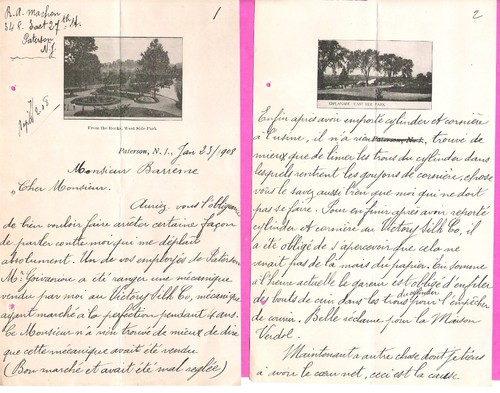 R.A. Machon
248 East 27th St.
Paterson
N.J.
1
From the Rocks, West Side Park
Paterson, N. J., Jan 23/1908
Monsieur Barrerre
Cher Monsieur.
Auriez vous l'obligeance
de bien vouloir faire arrêter certaine façon
de parler contre moi qui me déplait
absolument. Un de vos employés de Paterson
Mr a été ranger une mécanique
vendu par moi au Victory Silk Co, mécanique
ayant marché à la perfection pendant 4 ans.
Ce Monsieur n'a rien trouvé de mieux de dire
que cette mécanique avait été vendue
(Bon marché et avait été mal reglée)
2
ESPLANADE, EAST SIDE PARK.
Enfin après avoir emporté cylindre et cornière
à l'usine, il n'a rien Paterson, N. J., trouvé de
mieux que de limer les trous du cylindre dans
lesquels rentrent les goujons de cornière, chose
vous le savez aussi bien que moi qui ne doit
pas se faire. Pour en finir après avoir reporté
cylindre et cornière au Victory Silk Co, il
a été obligé de s'apercevoir que cela ne
venait pas de là mais du papier. En somme
à l'heure actuelle le gareur est obligé d'enfiler
des bouts de cuir dans les trous du cylindre pour l'empêcher
de courir. Belle réclame pour la Maison
Verdol.
Maintenant autre chose dont je tiens
à avoir le cœur net, ceci est la cause